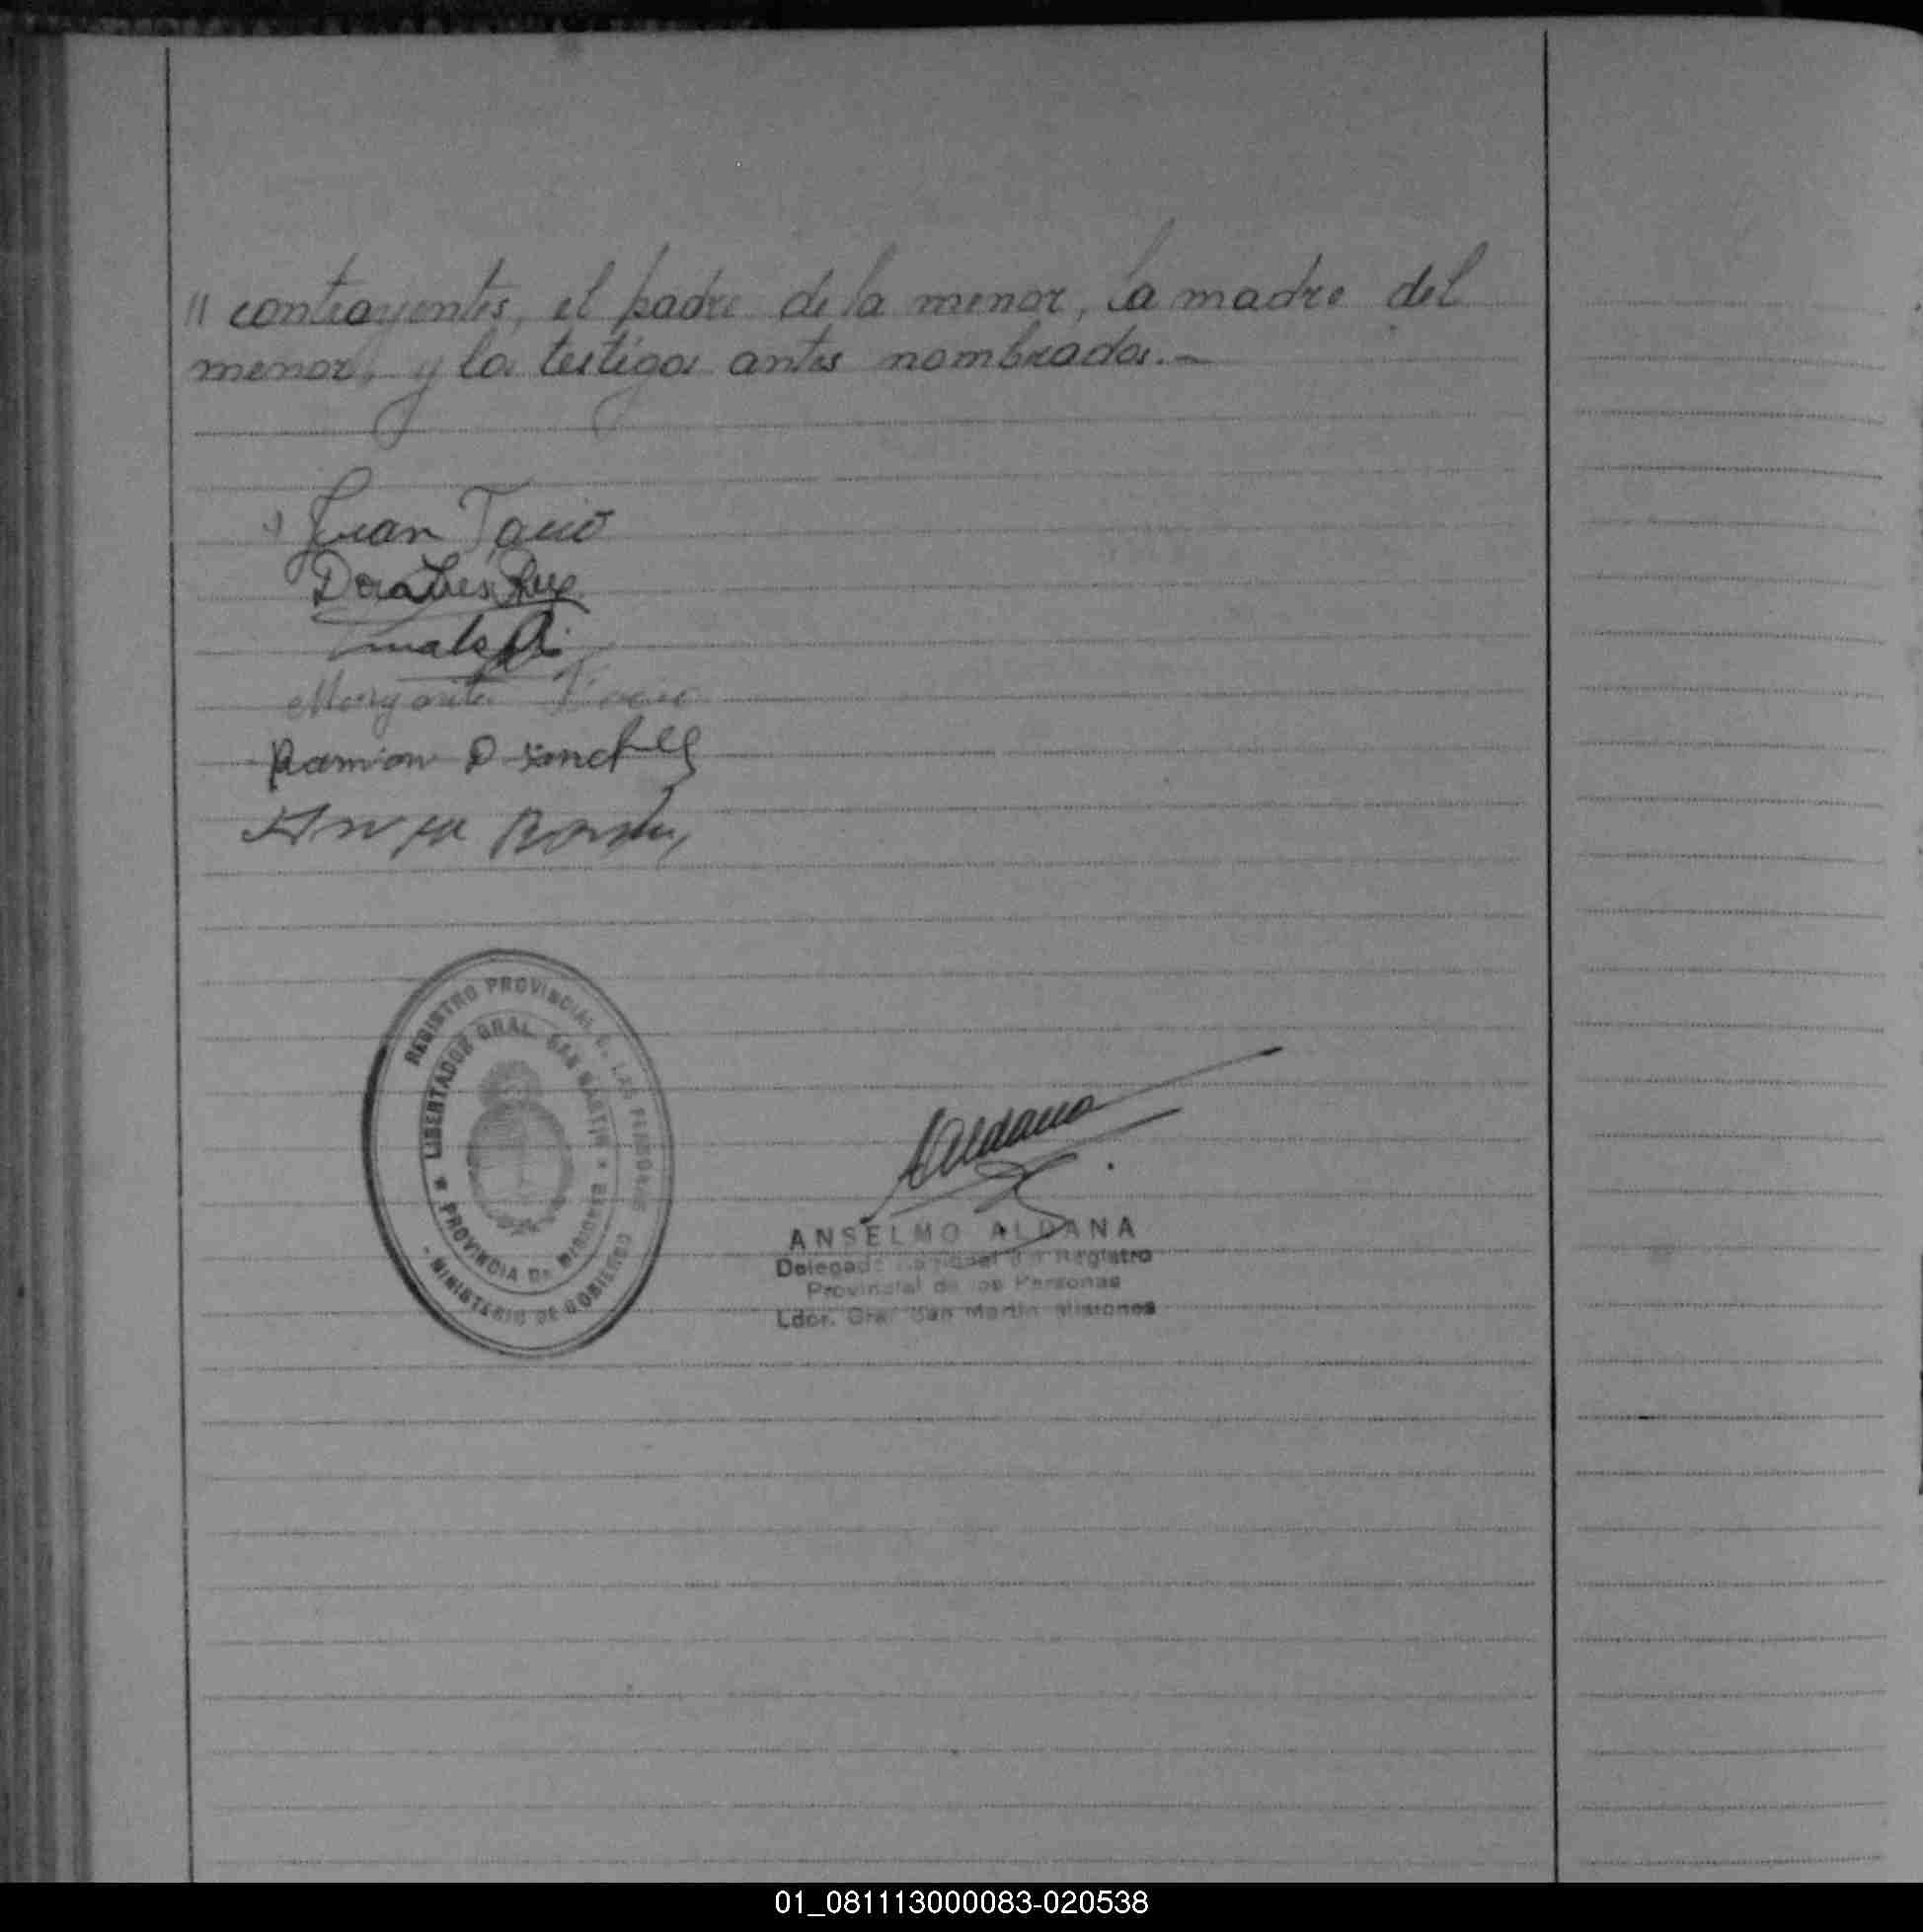 " contrayentes, el padre de la menor, la madre del
menor, y los testigos antes nombrados.-
Juan
Dora Ines
Margarita
Ramon D Sanchez
REGISTRO PROVINCIAL D. LAS PERSONAS
LIBERTADOR GRAL. SAN MARTIN
* PROVINCIA DE MISIONES *
- MINISTERIO DE GOBIERNO
Aldana
ANSELMO ALDANA
Delegado del Registro
Provincial de las Personas
Ldor. Gral San Martin Misiones
01_081113000083-020538